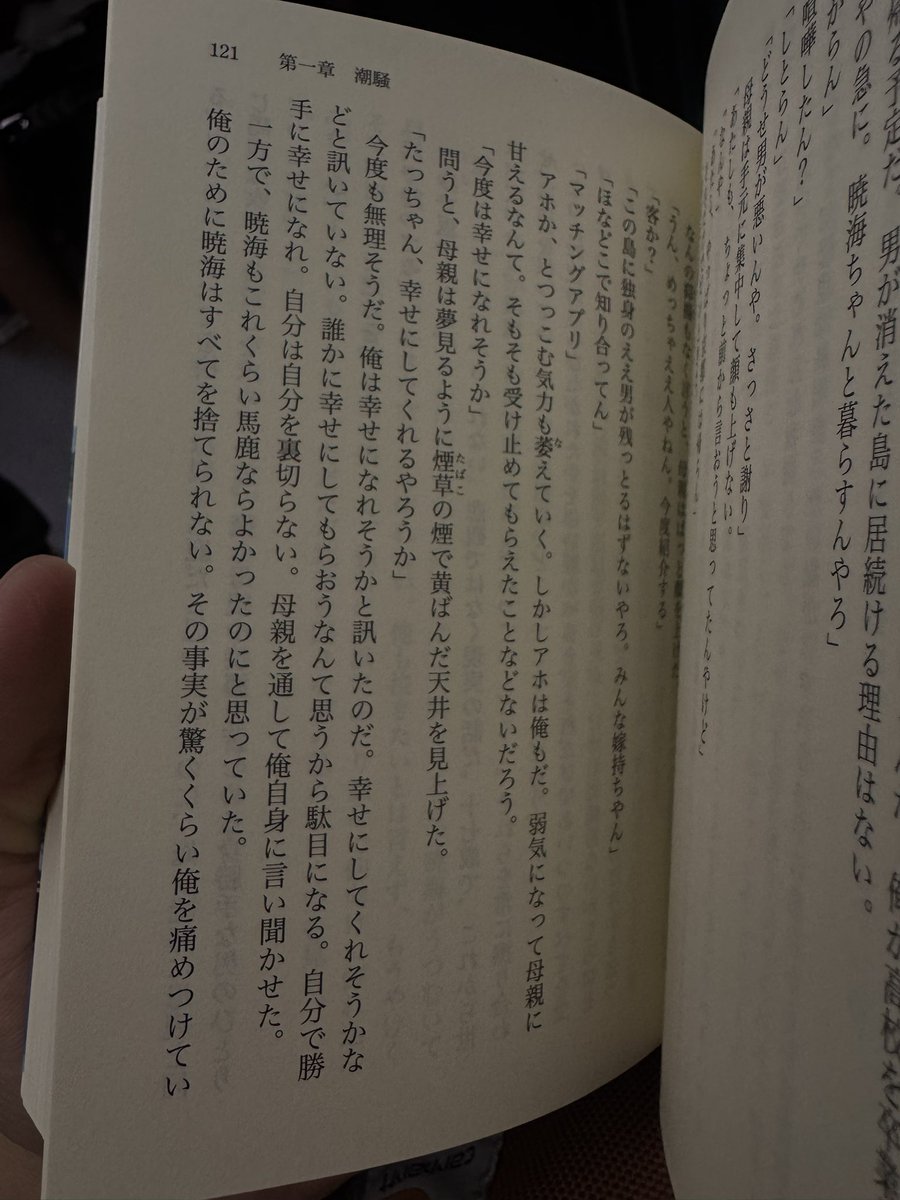 俺が高校を卒
帰る予定だ。男が消えた島に居続ける理由はない。
やの急に。暁海ちゃんと暮らすんやろ」
からん」
喧嘩したん？」
「しとらん」
「どうせ男が悪いんや。さっさと謝り」
母親は手元に集中して顔も上げない。
「あたしも、ちょっと前から言おうと思ってたんやけど」
「なんや」
121 第一章 潮騒
「客か？」
「うん、めっちゃええ人やねん。今度紹介する」
「この島に独身のええ男が残っとるはずないやろ。みんな嫁持ちやん」
「ほなどこで知り合ってん」
「マッチングアプリ」
アホか、とつっこむ気力も萎えていく。しかしアホは俺もだ。弱気になって母親に
甘えるなんて。そもそも受け止めてもらえたことなどないだろう。
「今度は幸せになれそうか」
問うと、母親は夢見るように煙草の煙で黄ばんだ天井を見上げた。
「たっちゃん、幸せにしてくれるやろうか」
今度も無理そうだ。俺は幸せになれそうかと訊いたのだ。幸せにしてくれそうかな
どと訊いていない。誰かに幸せにしてもらおうなんて思うから駄目になる。自分で勝
手に幸せになれ。自分は自分を裏切らない。母親を通して俺自身に言い聞かせた。
一方で、暁海もこれくらい馬鹿ならよかったのにと思っていた。
俺のために暁海はすべてを捨てられない。その事実が驚くくらい俺を痛めつけてい